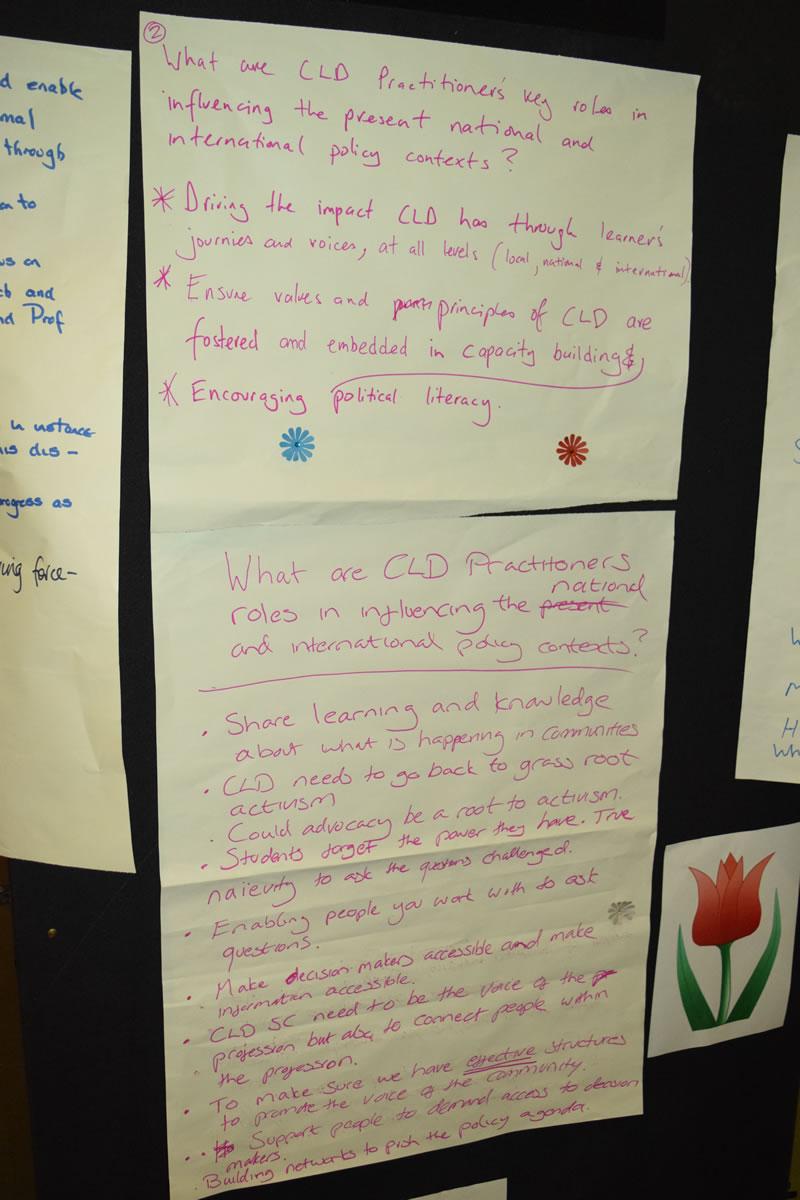 d enable
mal
through
on to
us on
ch and
nd Prof
in instance
his dis -
rogress as
ving force -
②
What are CLD Practitioner's key roles in
influencing the present national and
international policy contexts?
* Driving the impact CLD has through learner's
journies and voices, at all levels (local, national & international)
* Ensure values and principles of CLD are
fostered and embedded in capacity building &
* Encouraging political literacy.
What are CLD Practitioners
national
roles in influencing the present
and international policy contexts?
• Share learning and knowledge
about what is happening in communities
• CLD needs to go back to grass root
activism
• Could advocacy be a root to activism.
• Students forget the power they have. True
naievity to ask the questions challenged.
• Enabling people you work with to ask
questions.
• Make decision makers accessible and make
information accessible.
• CLD SC need to be the voice of the
profession but also to connect people within
the profession.
• To make sure we have effective structures
to promote the voice of the community.
• Support people to demand access to decision
makers.
• Building networks to push the policy agenda.
H
Wh